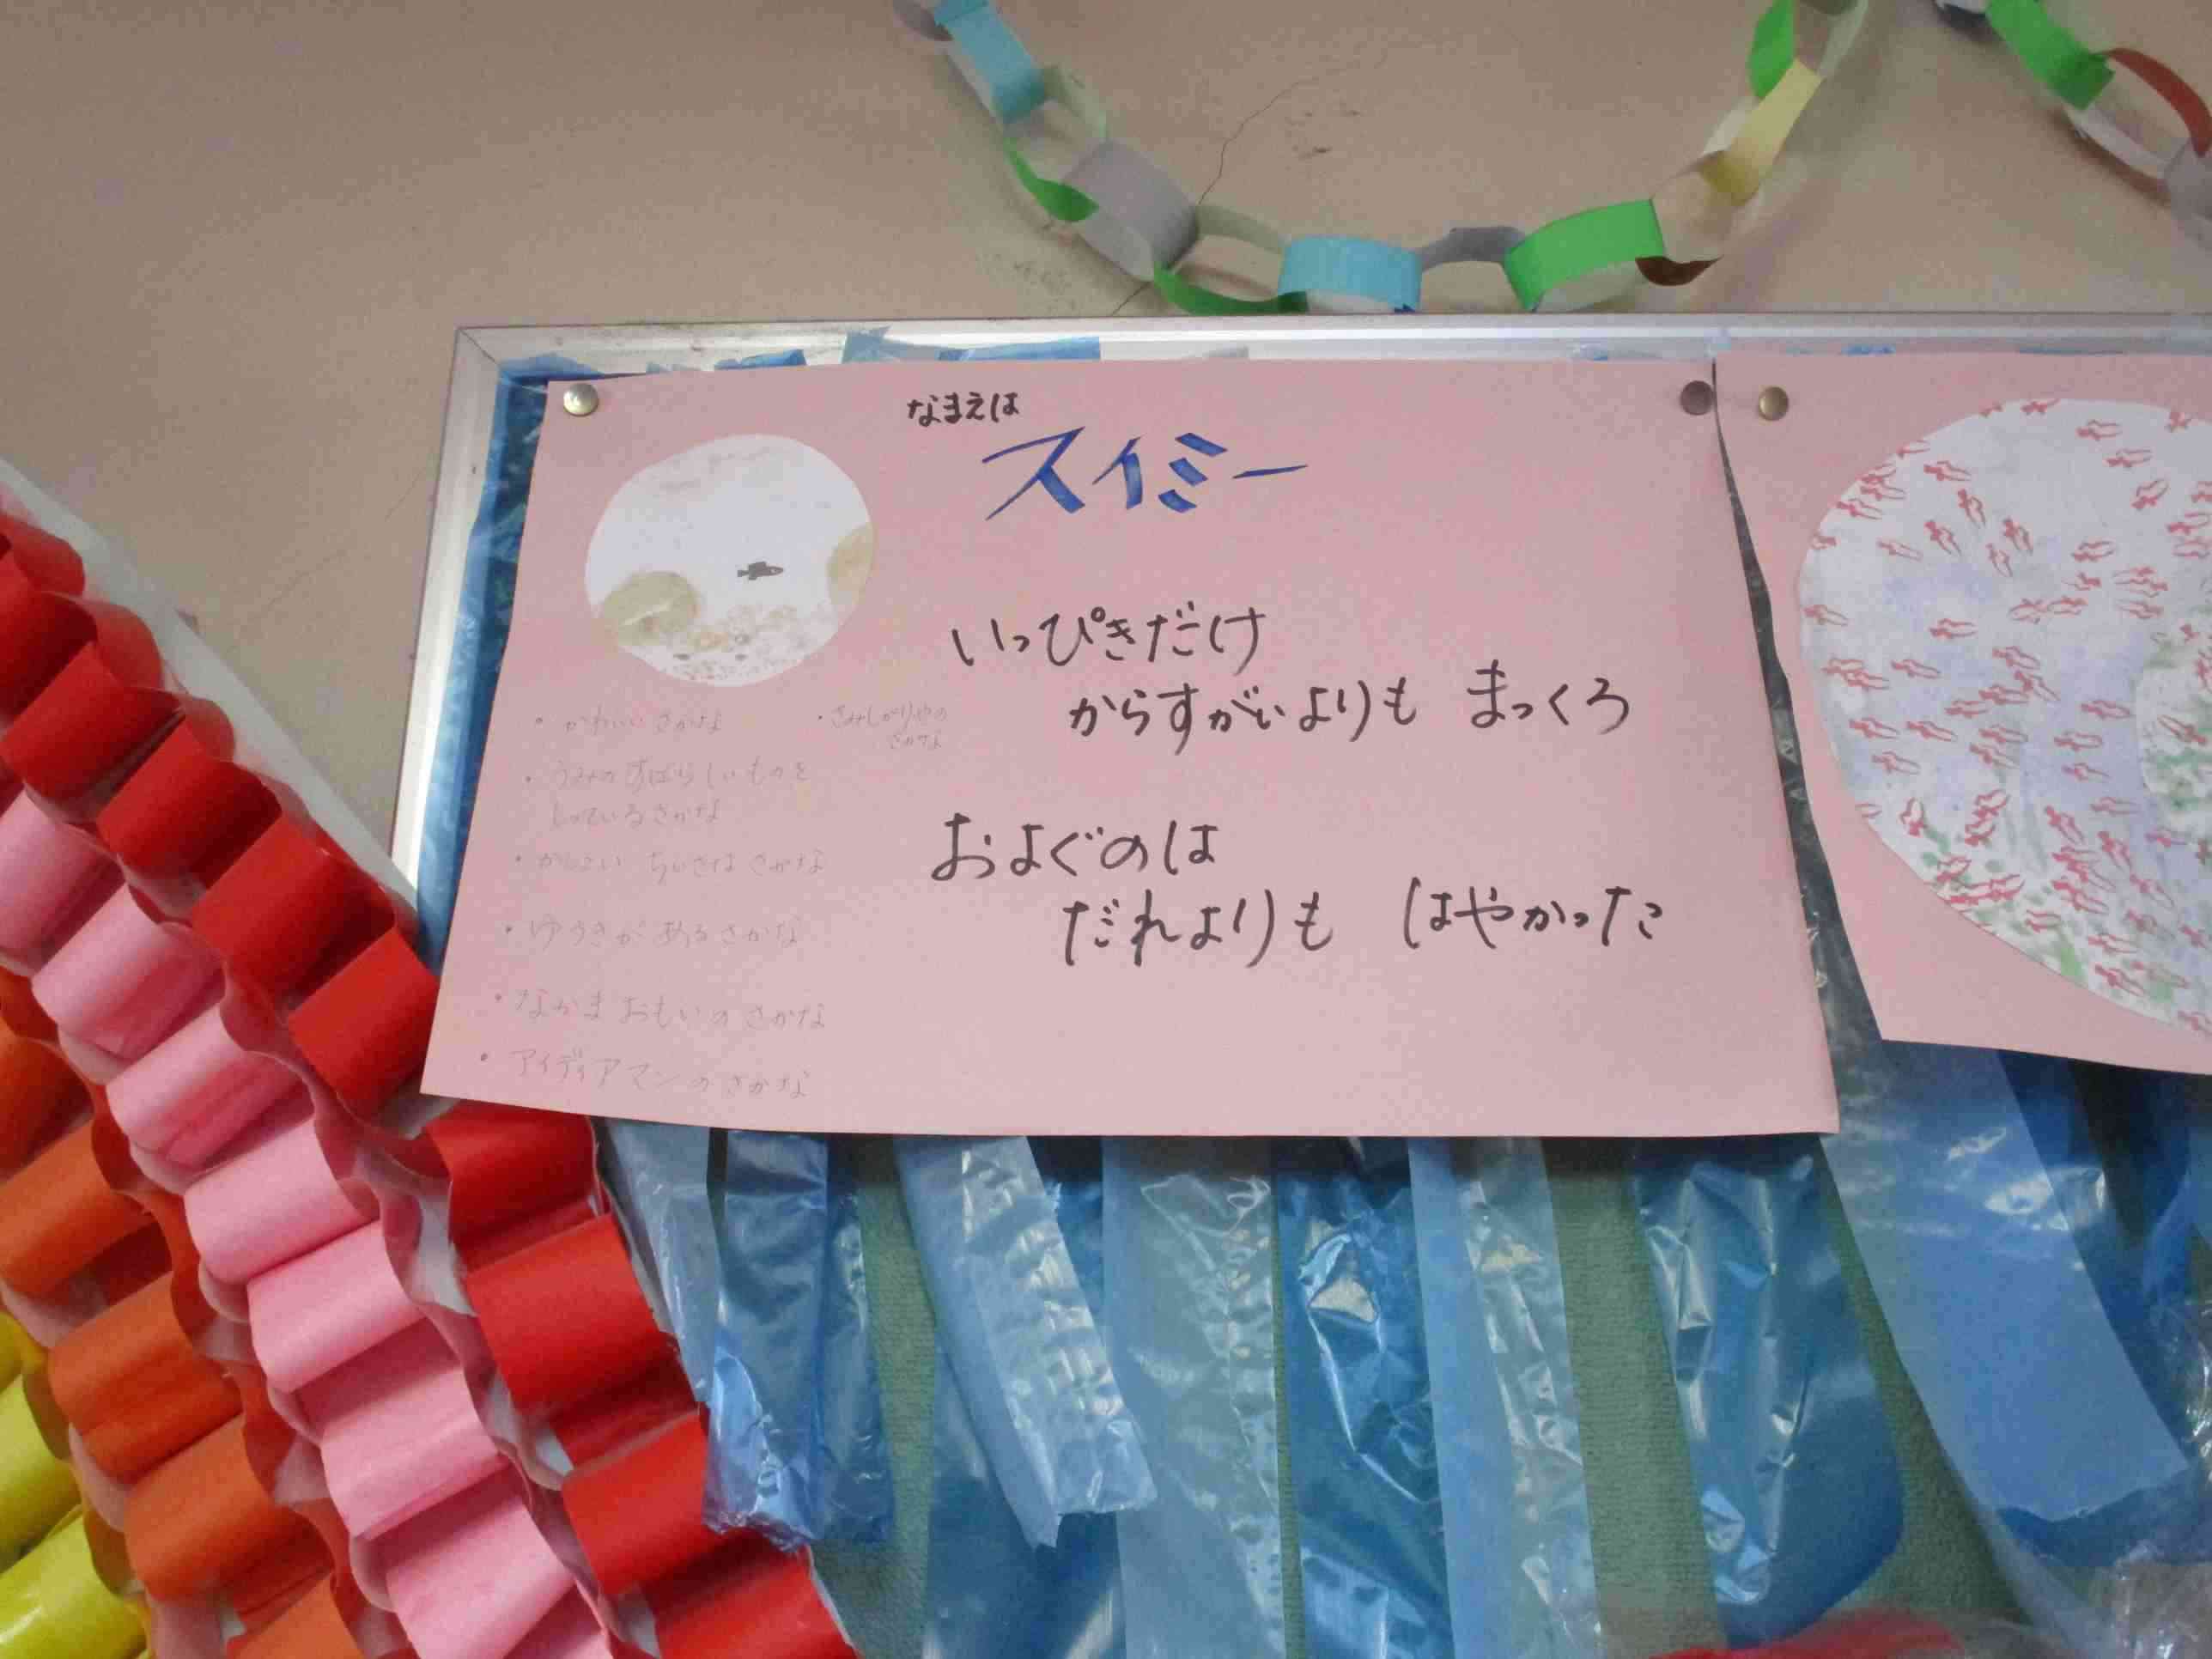 なまえは
スイミー
いっぴきだけ
からすがいよりも まっくろ
およぐのは
だれよりも はやかった
・かわいい さかな
・さみしがりやの
さかな
・うみの すばらしいものを
しっているさかな
・かしこい ちいさな さかな
・ゆうきが あるさかな
・なかま おもいの さかな
・アイディアマンの さかな